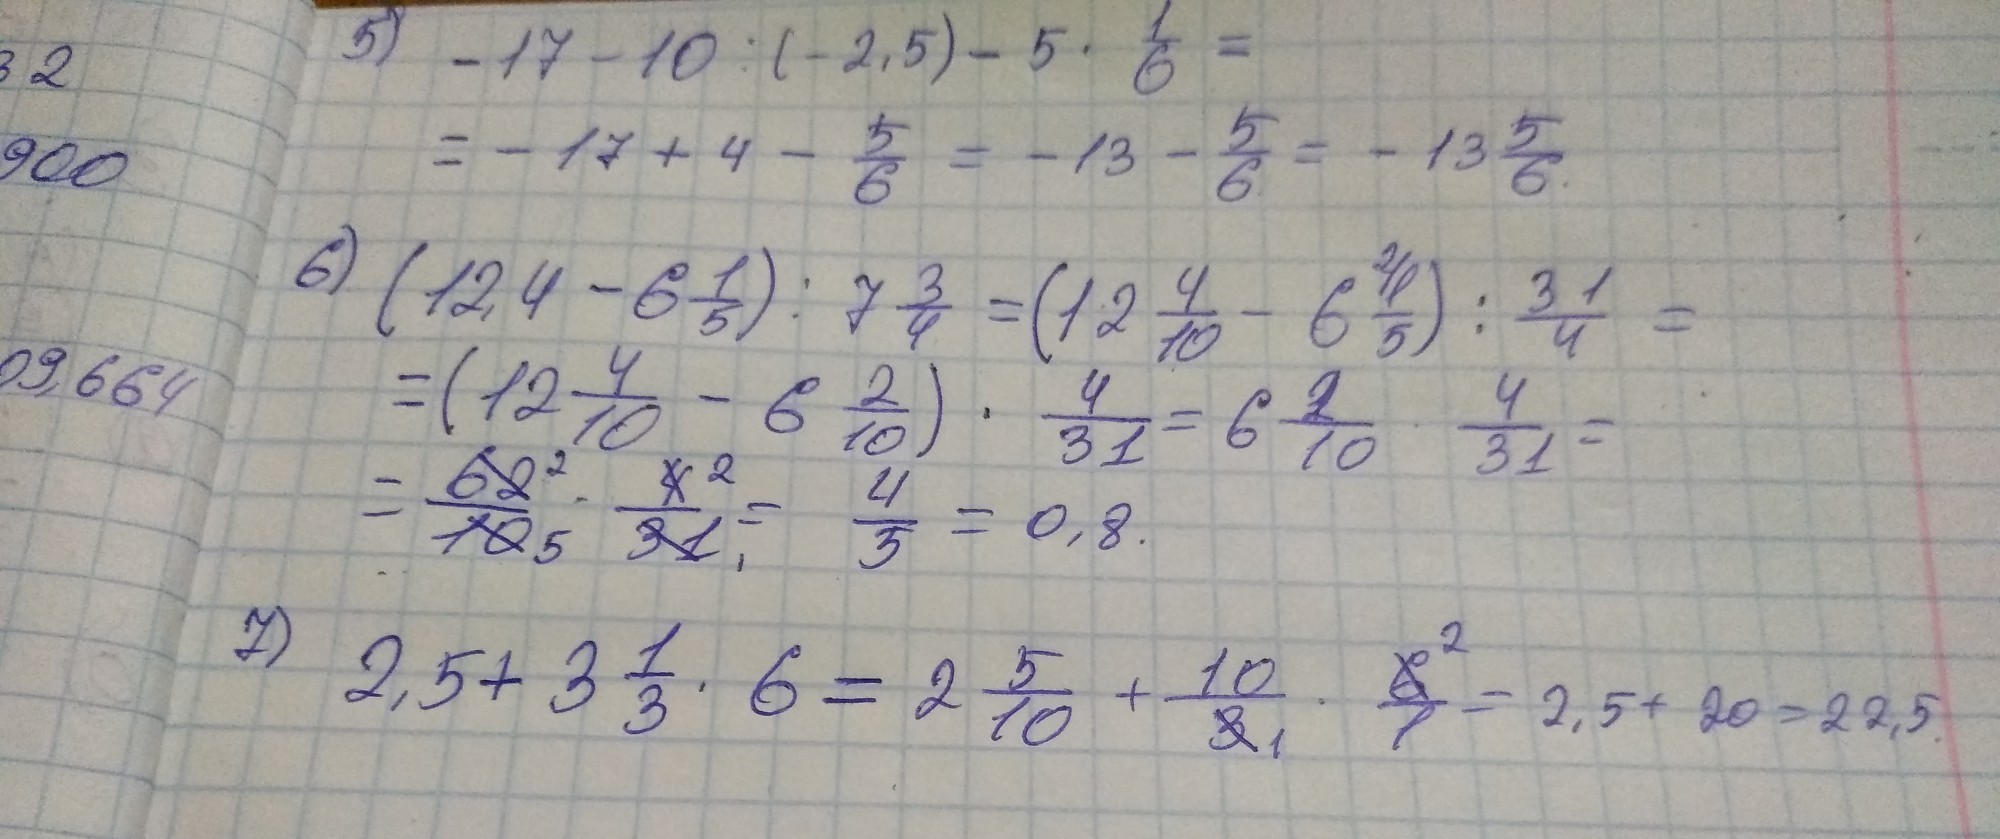 32
900
09,664
5) -17 - 10 : (-2,5) - 5 · 1/6 =
= -17 + 4 - 5/6 = -13 - 5/6 = -13 5/6.
6) (12,4 - 6 1/5) : 7 3/4 = (12 4/10 - 6 1/5) : 31/4 =
= (12 4/10 - 6 2/10) · 4/31 = 6 2/10 · 4/31 =
= 62 2/10 5 · 4 2/31 1 = 4/5 = 0,8.
7) 2,5 + 3 1/3 · 6 = 2 5/10 + 10/3 1 · 6 2/1 = 2,5 + 20 = 22,5.